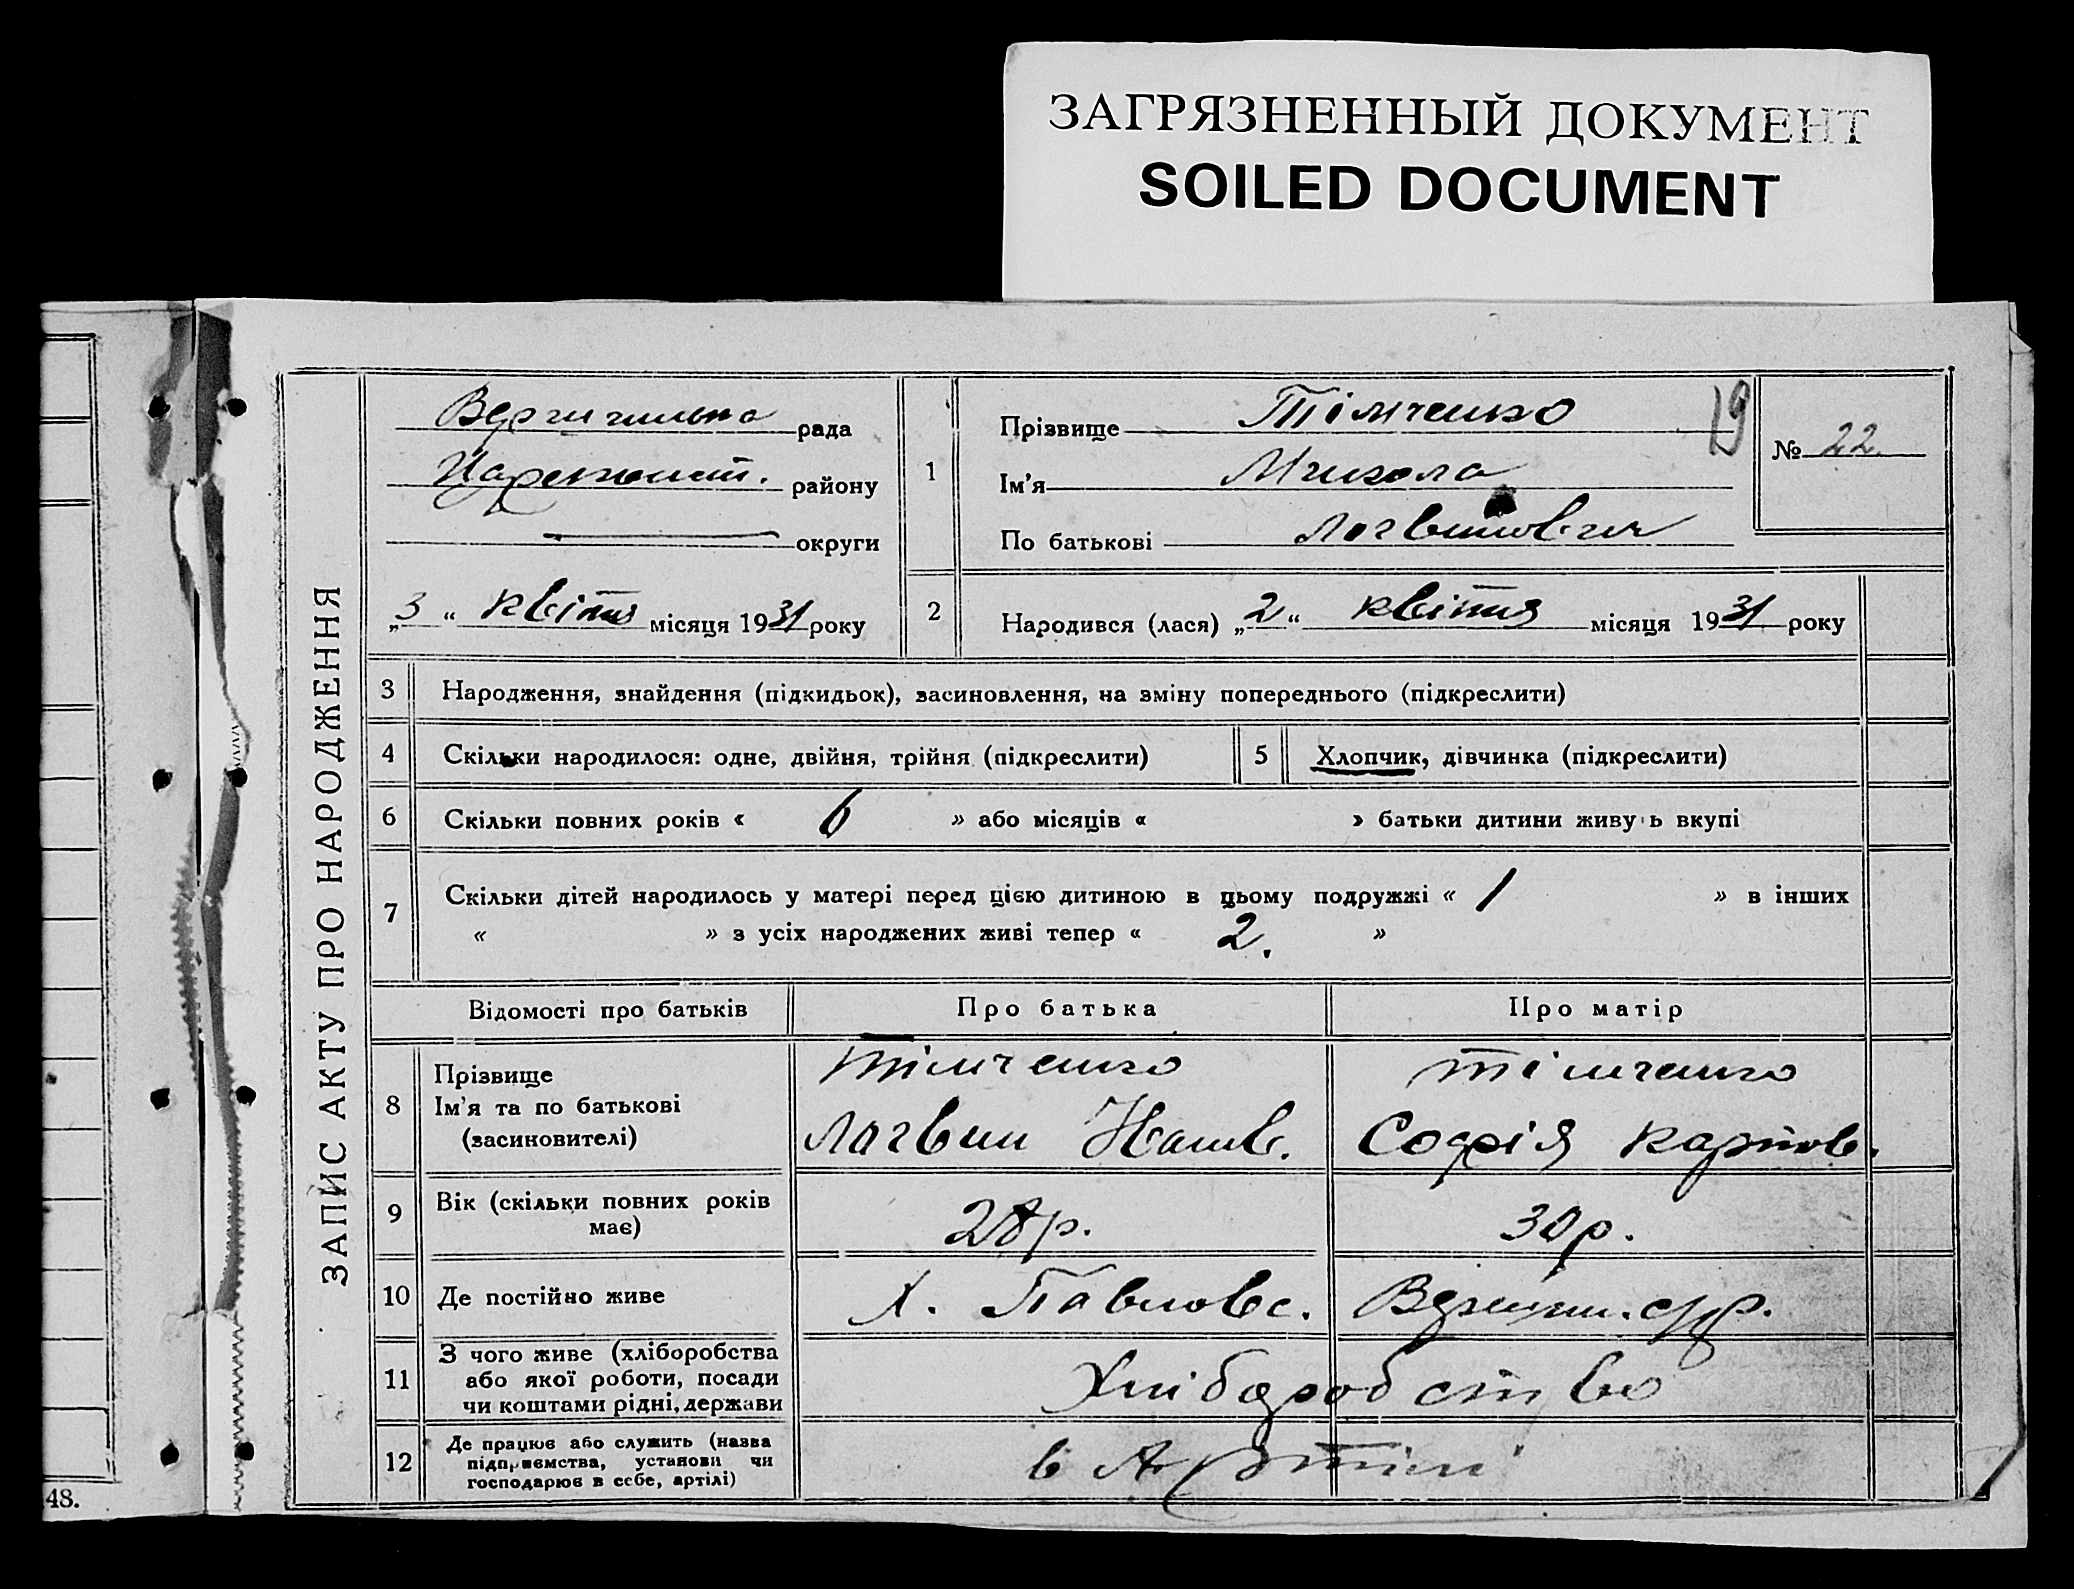 ЗАГРЯЗНЕННЫЙ ДОКУМЕНТ
SOILED DOCUMENT
48.
ЗАПИС АКТУ ПРО НАРОДЖЕННЯ
рада
району
округи
„3“ квітня місяця 1931 року
1
Прізвище Тімченко
Ім'я Микола
По батькові Логвинович
19
№ 22
2
Народився (лася) „2“ квітня місяця 1931 року
3 Народження, знайдення (підкидьок), засиновлення, на зміну попереднього (підкреслити)
4 Скільки народилося: одне, двійня, трійня (підкреслити)
5 Хлопчик, дівчинка (підкреслити)
6 Скільки повних років « 6 » або місяців « » батьки дитини живуть вкупі
7 Скільки дітей народилось у матері перед цією дитиною в цьому подружжі « 1 » в інших
« » з усіх народжених живі тепер « 2. »
Відомості про батьків Про батька Про матір
8 Прізвище
Ім'я та по батькові
(засиновителі)
Тімченко
Логвин
Тімченко
Софія Карпов.
9 Вік (скільки повних років
має)
28 р. 30 р.
10 Де постійно живе Х. Павловс.
11 З чого живе (хліборобства
або якої роботи, посади
чи коштами рідні, держави
Хліборобство
12 Де працює або служить (назва
підприємства, установи чи
господарює в себе, артілі)
в Артілі